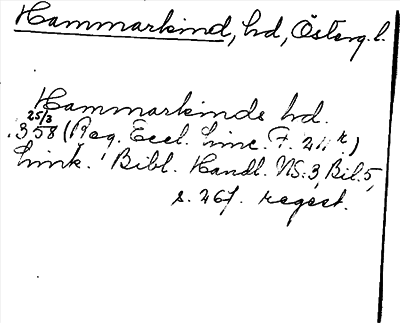 Hammarkind, hd, Österg.l.
Hammarkinds hd.
25/3
1358 (Reg. Eccl. Linc. F. 211 r)
Link. Bibl. Handl. NS. 3, Bil. 5,
s. 267. regest.